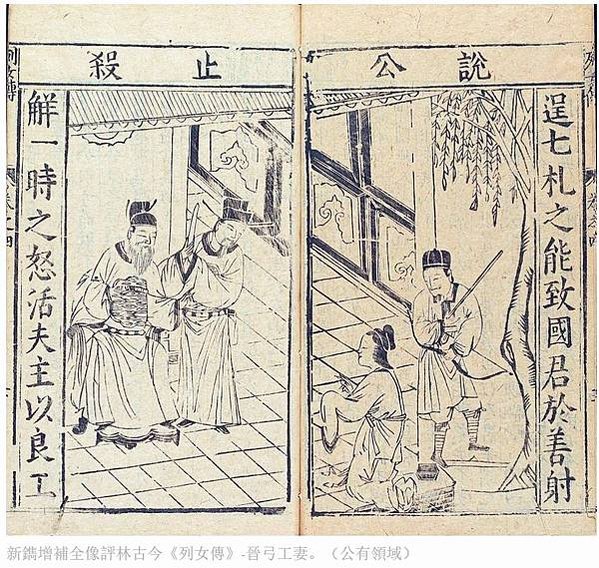 說公止殺
逞七札之能致國君於善射
觧一時之怒活夫主以良工
列女傳
卷之四
新鐫增補全像評林古今《列女傳》-晉弓工妻。（公有領域）